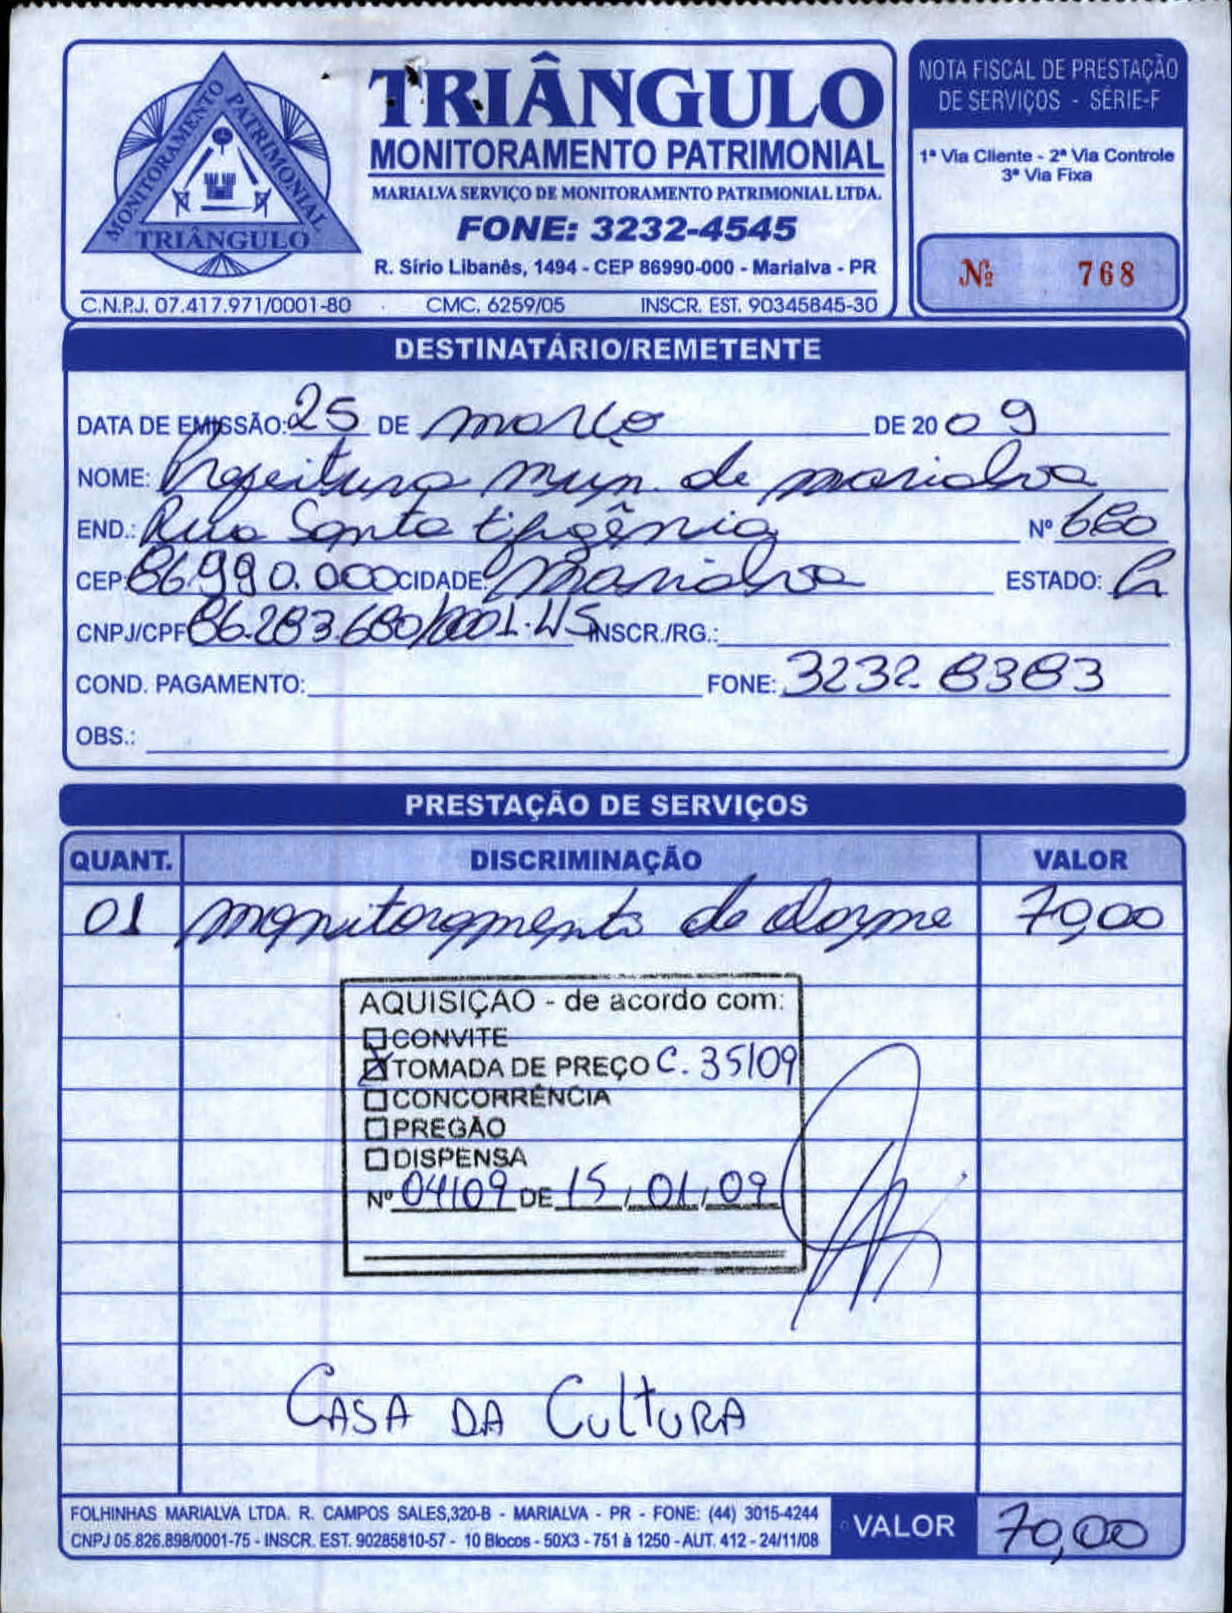 MONITORAMENTO PATRIMONIAL
TRIÂNGULO
TRIÂNGULO
MONITORAMENTO PATRIMONIAL
MARIALVA SERVIÇO DE MONITORAMENTO PATRIMONIAL LTDA.
FONE: 3232-4545
R. Sírio Libanês, 1494 - CEP 86990-000 - Marialva - PR
C.N.P.J. 07.417.971/0001-80 CMC. 6259/05 INSCR. EST. 90345845-30
NOTA FISCAL DE PRESTAÇÃO
DE SERVIÇOS - SÉRIE-F
1ª Via Cliente - 2ª Via Controle
3ª Via Fixa
Nº 768
DESTINATÁRIO/REMETENTE
DATA DE EMISSÃO: 25 DE março DE 2009
NOME: Prefeitura mun. de marialva
END.: Rua Santa Efigênia Nº 680
CEP: 86990.000 CIDADE: Marialva ESTADO: Pr
CNPJ/CPF 86.283.680/0001-45 INSCR./RG.:
COND. PAGAMENTO: FONE: 3232 8383
OBS.:
PRESTAÇÃO DE SERVIÇOS
QUANT. DISCRIMINAÇÃO VALOR
01 monitoramento de alarme 70,00
AQUISIÇÃO - de acordo com:
CONVITE
TOMADA DE PREÇO C. 35/09
CONCORRÊNCIA
PREGÃO
DISPENSA
Nº 04/09 DE 15/01/09
CASA DA CULTURA
FOLHINHAS MARIALVA LTDA. R. CAMPOS SALES,320-B - MARIALVA - PR - FONE: (44) 3015-4244
CNPJ 05.826.898/0001-75 - INSCR. EST. 90285810-57 - 10 Blocos - 50X3 - 751 à 1250 - AUT. 412 - 24/11/08
VALOR 70,00